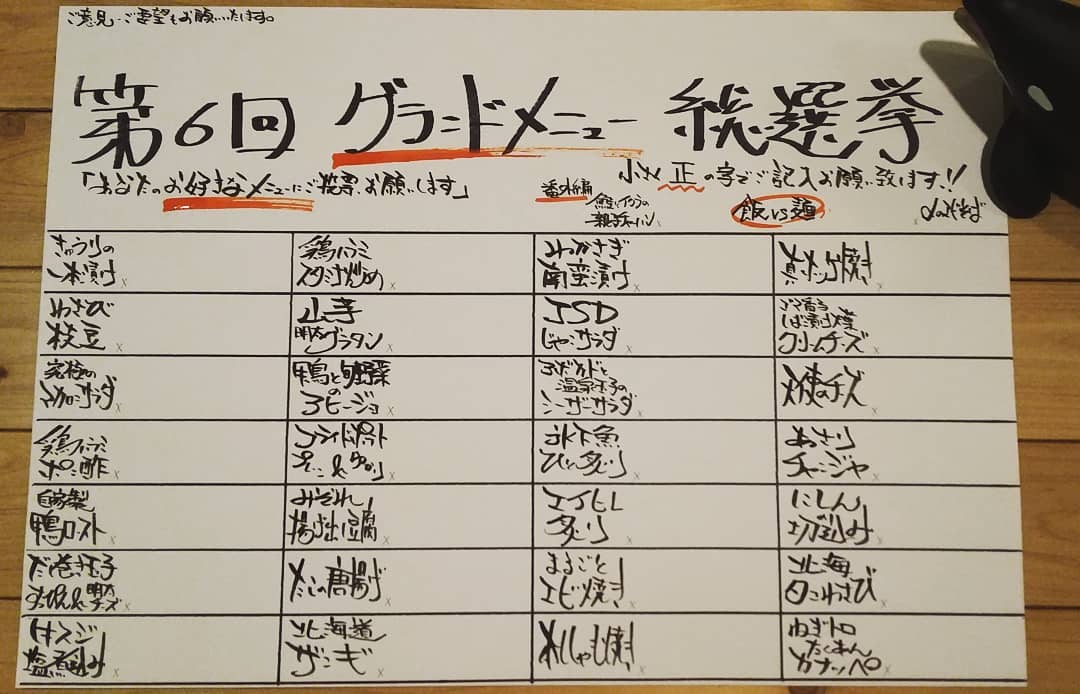 ご意見・ご要望もお願いいたします。
第6回 グランドメニュー 総選挙
「あなたのお好きなメニューにご投票、お願いします」
小さく正の字でご記入お願い致します!!
番外編
鮭といくらの
親子チャーハン
飯 vs 麺
きゅうりの
一本漬け
鶏ハラミ
スタミナ炒め
わかさぎ
南蛮漬け
真ホッケ焼き
わさび
枝豆
山芋
明太グラタン
JSD
じゃこサラダ
ゴマ香る
しば漬け
クリームチーズ
究極の
マカロニサラダ
鴨と旬野菜の
アヒージョ
アボカドと
温泉玉子の
シーザーサラダ
鶏ハラミ
ポン酢
フライドポテト
氷下魚
炙り
あさり
チャンジャ
自家製
鴨ロースト
みぞれ
揚げ出し豆腐
エイヒレ
炙り
にしん
切り込み
だし巻き玉子
明太
チーズ
唐揚げ
まるごと
エビ焼き
北海
タコわさび
牛スジ
塩煮込み
北海道
ザンギ
ししゃも焼き
ねぎトロ
たくあん
カナッペ